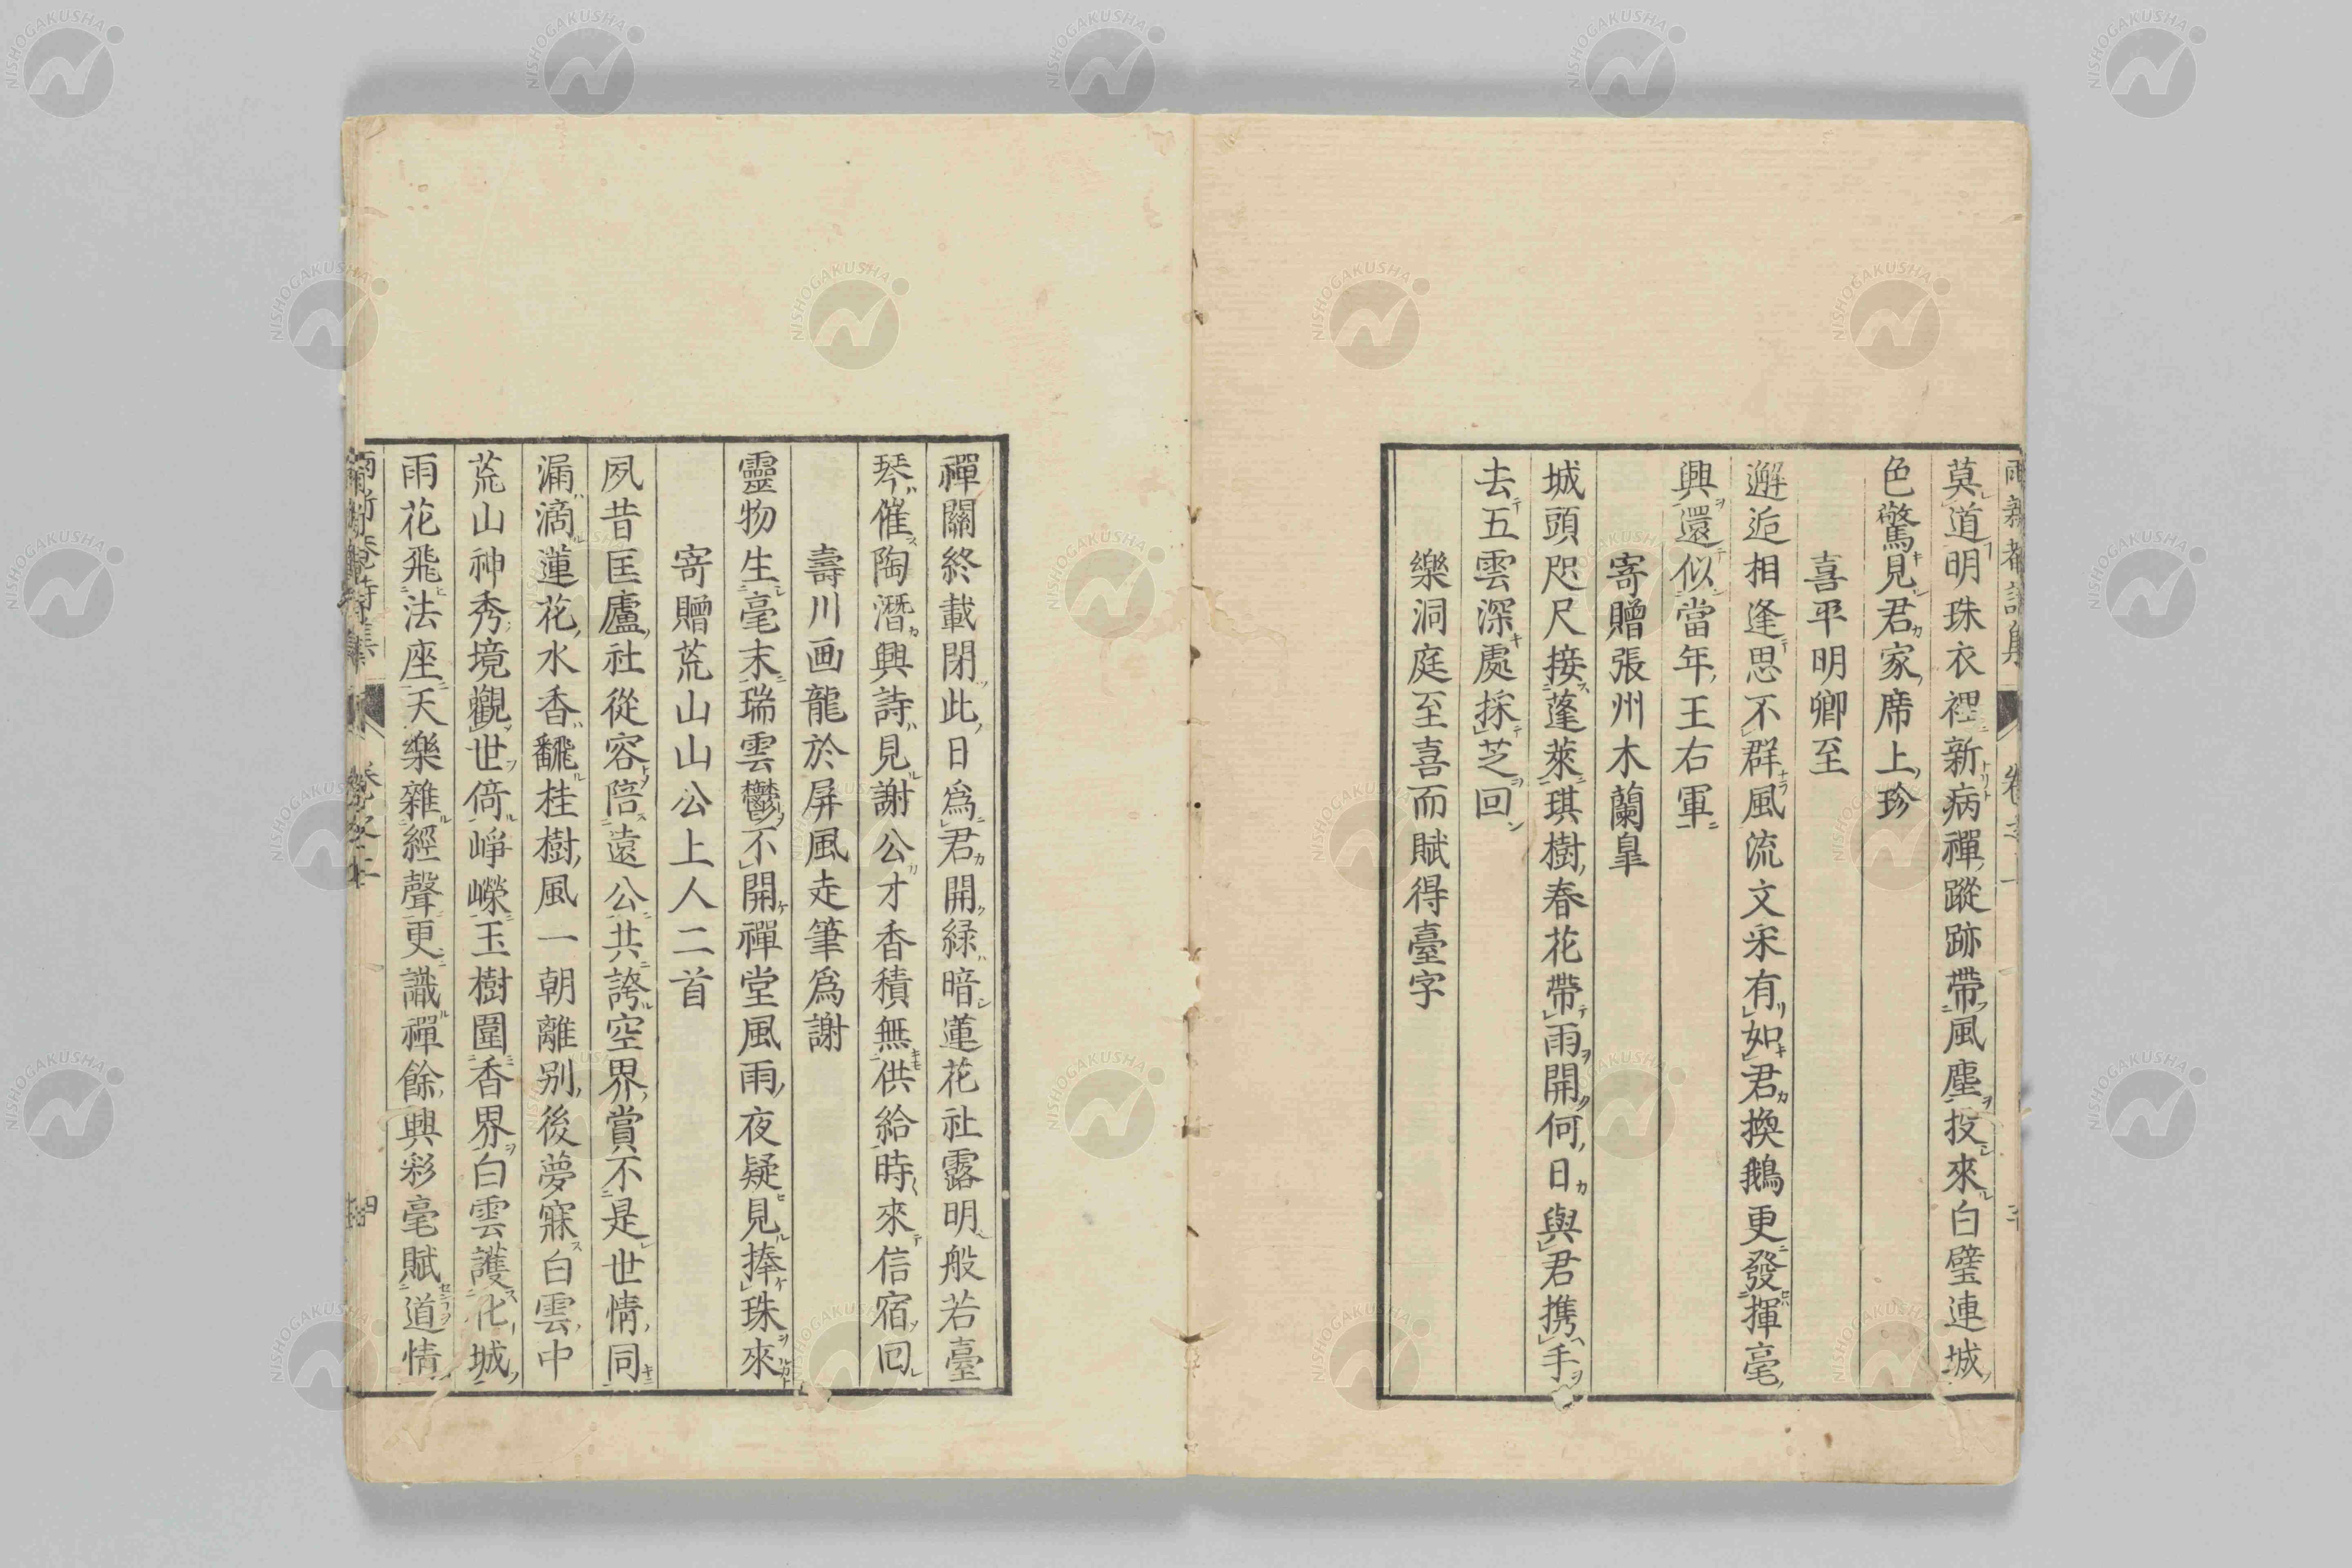 莫道明珠衣裡新病禪蹤跡帶風塵投來白璧連城
色驚見君家席上珍
喜平明卿至
邂逅相逢思不群風流文采有如君換鵝更發揮毫
興還似當年王右軍
寄贈張州木蘭皐
城頭咫尺接蓬萊琪樹春花帶雨開何日與君携手
去五雲深處採芝回
樂洞庭至喜而賦得臺字
禪關終載閉此日爲君開綠暗蓮花社露明般若臺
琴催陶潛興詩見謝公才香積無供給時來信宿回
壽川画龍於屏風走筆爲謝
靈物生毫末瑞雲鬱不開禪堂風雨夜疑見捧珠來
寄贈荒山山公上人二首
夙昔匡廬社從容陪遠公共誇空界賞不是世情同
漏滴蓮花水香飜桂樹風一朝離別後夢寐白雲中
荒山神秀境觀世倚崢嶸玉樹圍香界白雲護化城
雨花飛法座天樂雜經聲更識禪餘興彩毫賦道情
NISHOGAKUSHA